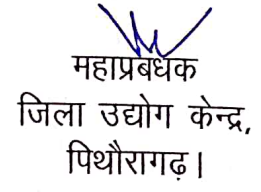 महाप्रबंधक
जिला उद्योग केन्द्र,
पिथौरागढ़।